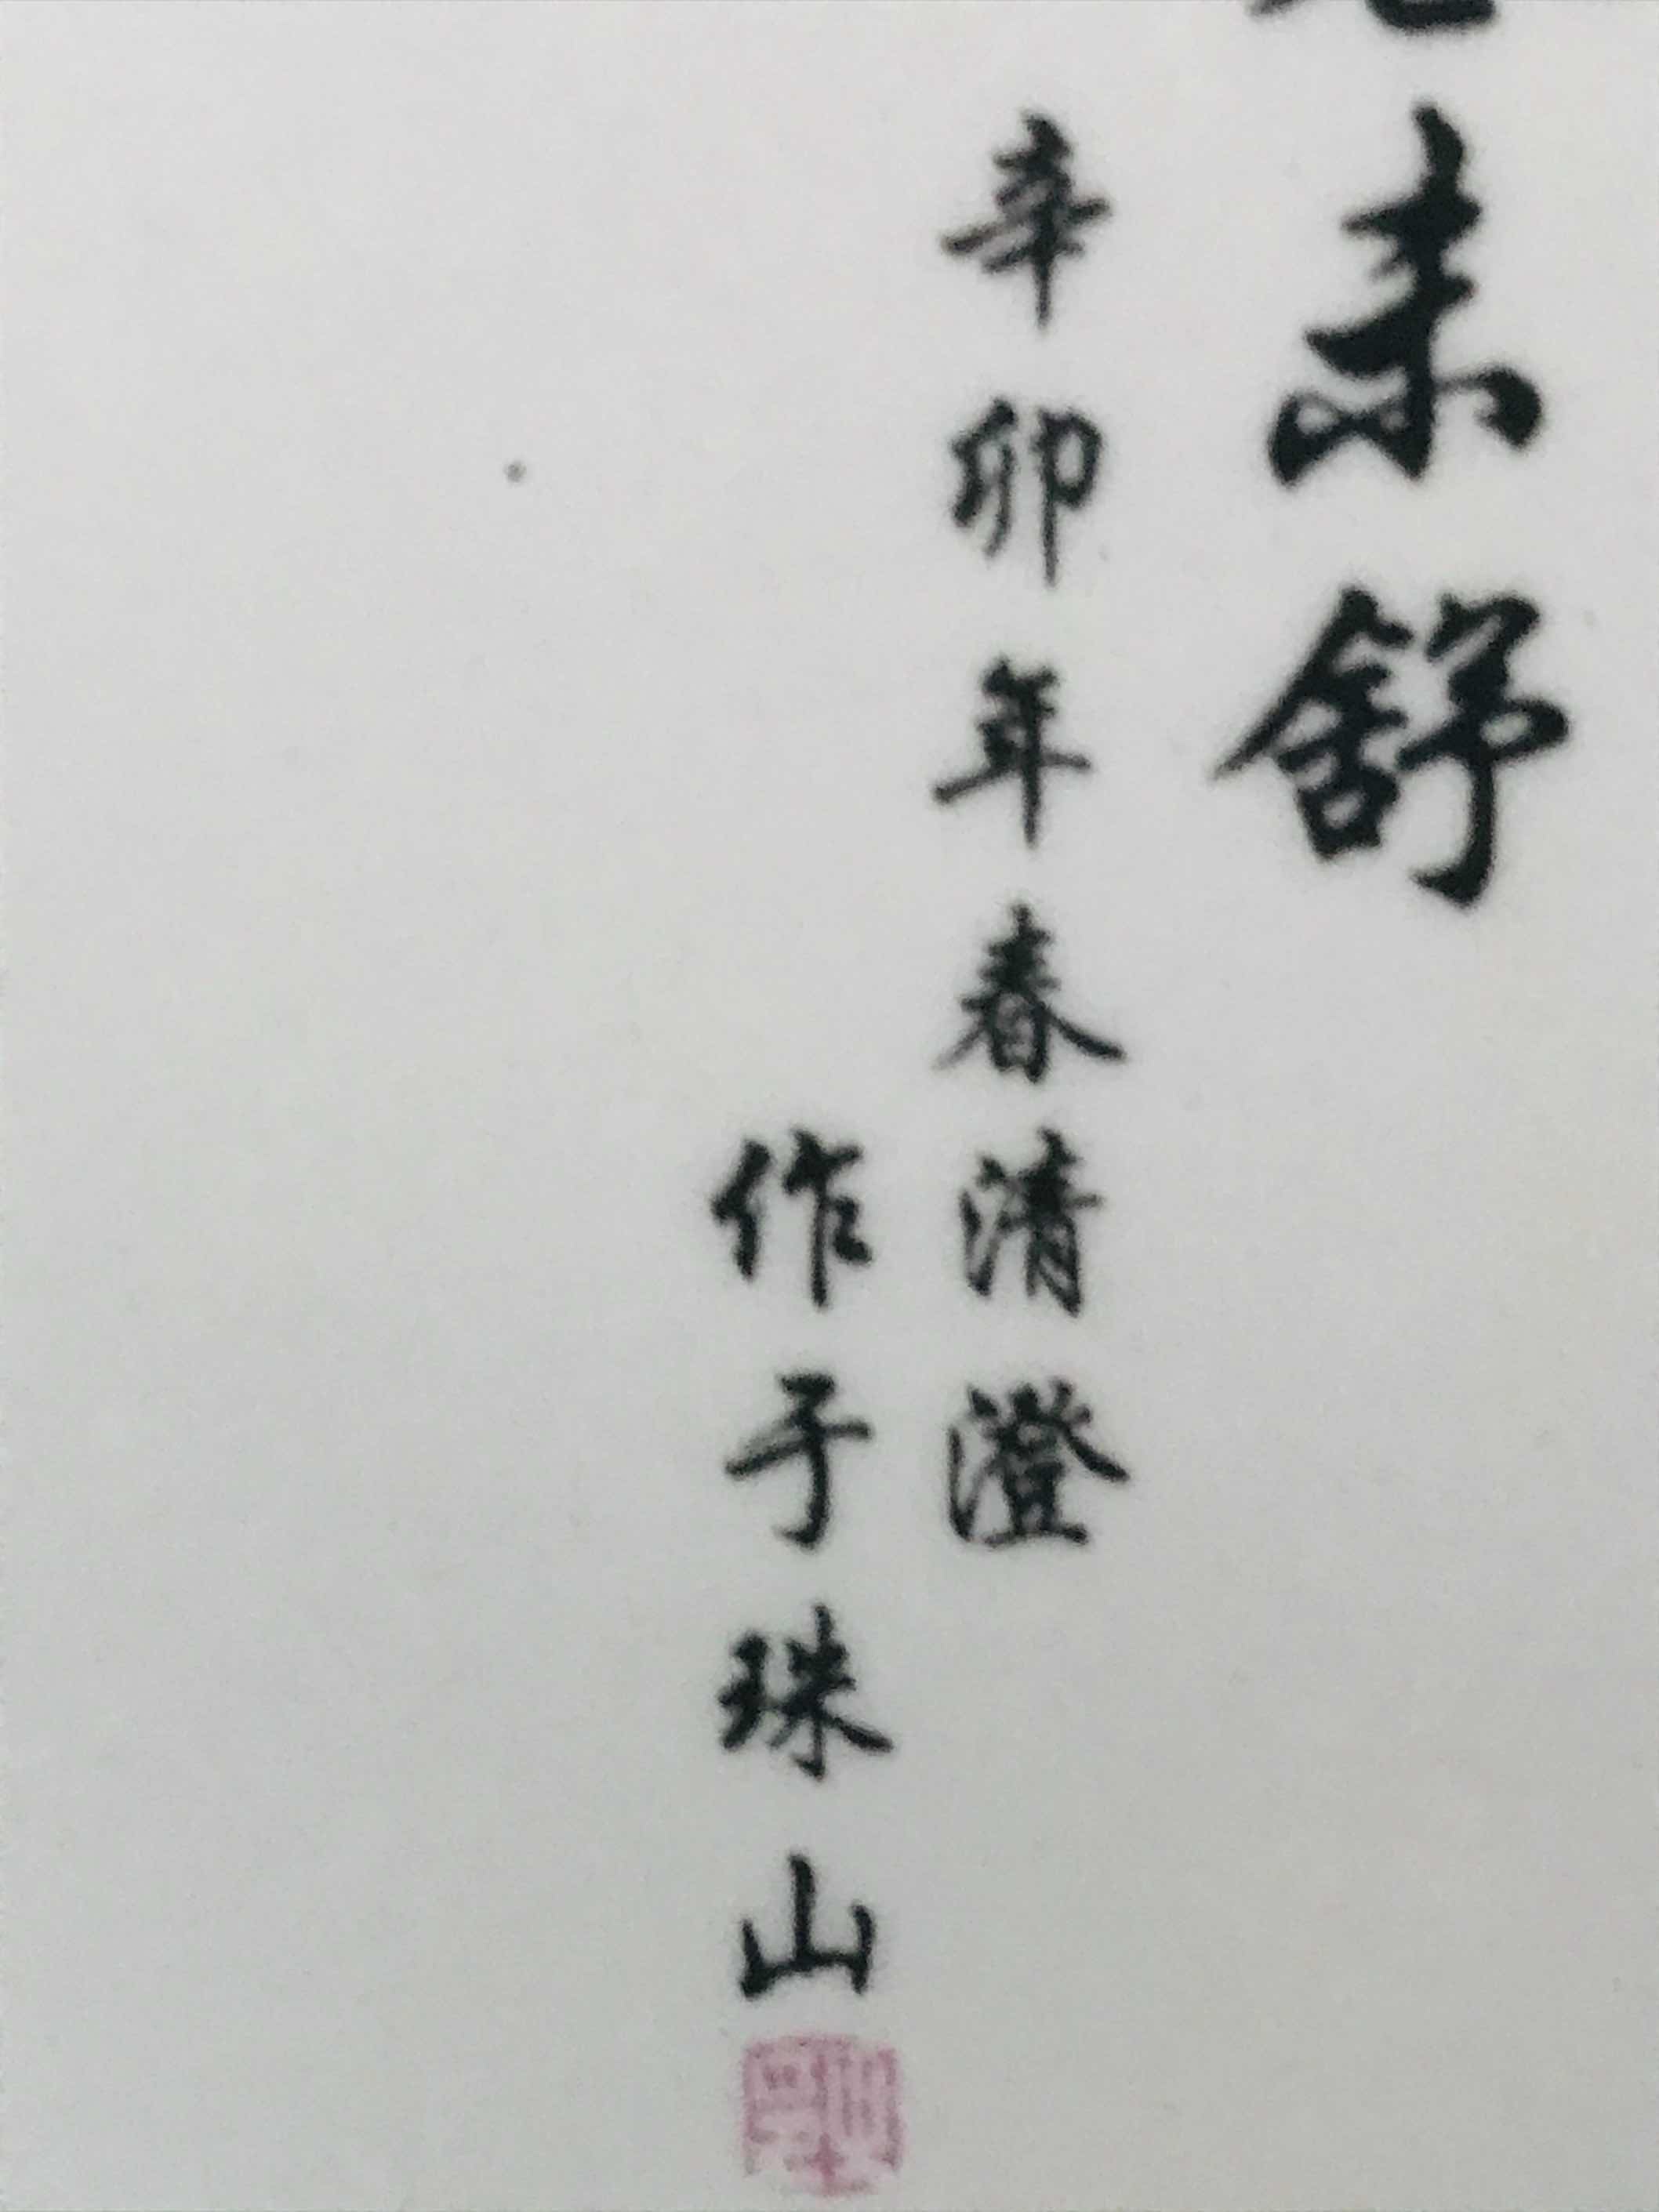 未舒
辛卯年春清澄
作于珠山